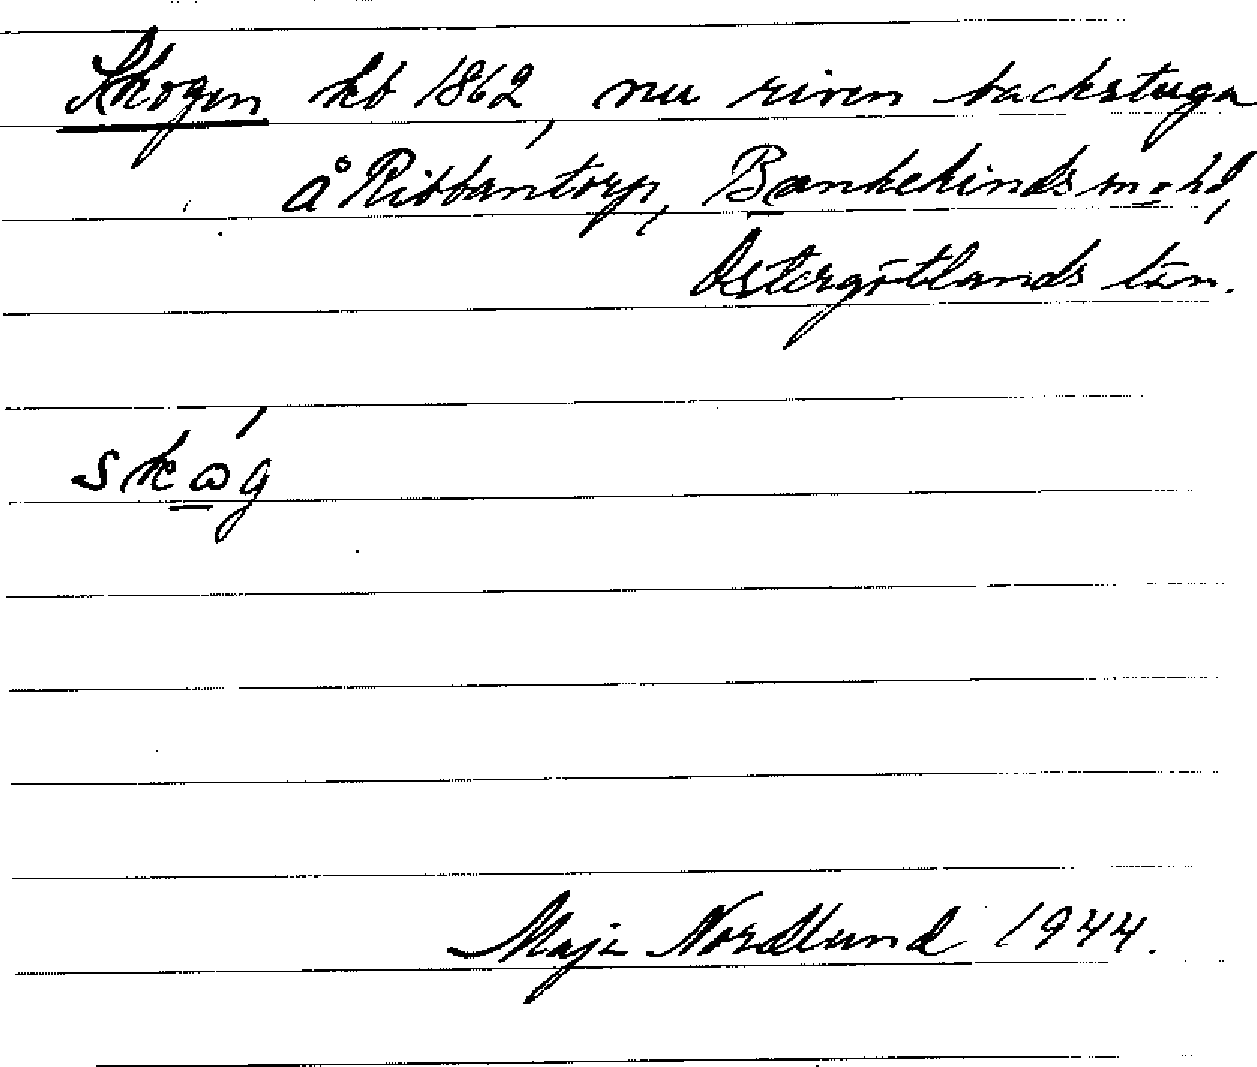 Skogen kb 1862, nu riven backstuga
å Ribbantorp, Bankekinds sn o hd,
Östergötlands län.
skωg
Maja Nordlund 1944.